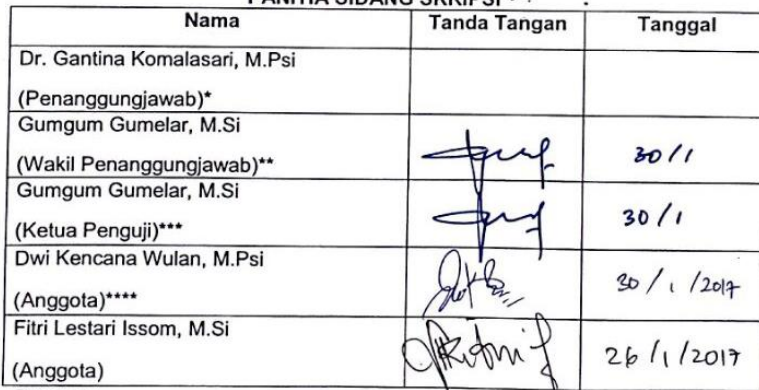 PANITIA SIDANG SKRIPSI
Nama Tanda Tangan Tanggal
Dr. Gantina Komalasari, M.Psi
(Penanggungjawab)*
Gumgum Gumelar, M.Si
(Wakil Penanggungjawab)** 30/1
Gumgum Gumelar, M.Si
(Ketua Penguji)*** 30/1
Dwi Kencana Wulan, M.Psi
(Anggota)**** 30/1/2017
Fitri Lestari Issom, M.Si
(Anggota) 26/1/2017